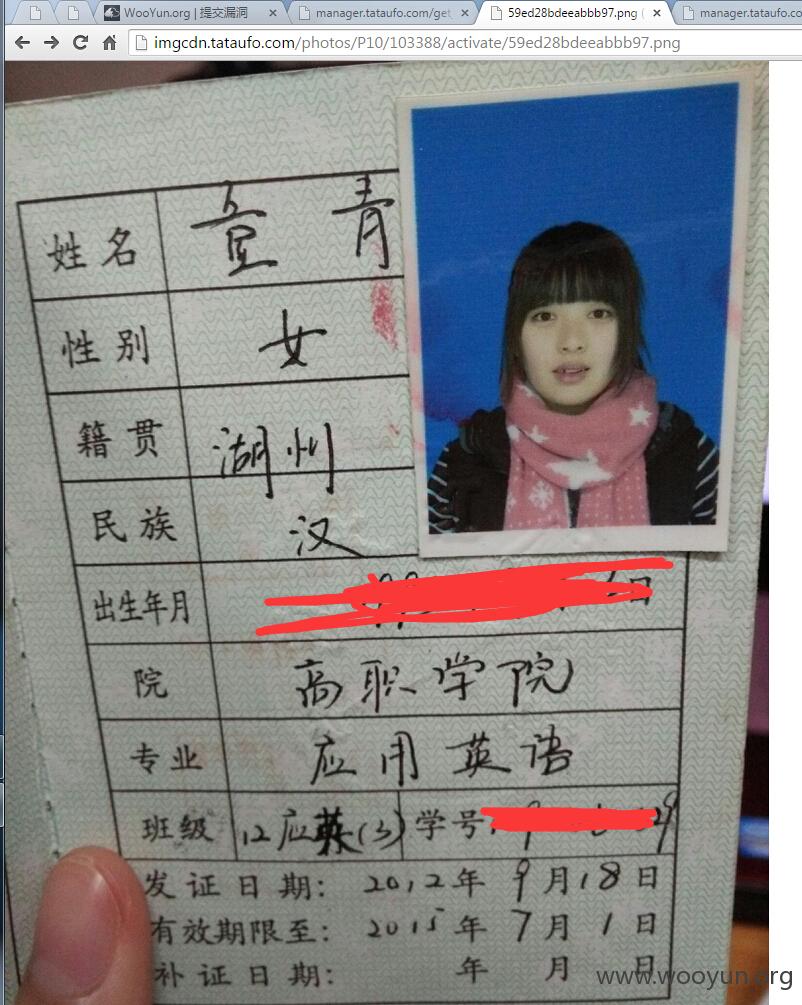 WooYun.org | 提交漏洞
manager.tataufo.com/get
59ed28bdeeabbb97.png (
manager.tataufo.co
imgcdn.tataufo.com/photos/P10/103388/activate/59ed28bdeeabbb97.png
姓名 青
性别 女
籍贯 湖州
民族 汉
出生年月 日
院 高职学院
专业 应用英语
班级 12应英(3) 学号
发证日期: 2012年9月18日
有效期限至: 2015年7月1日
补证日期: 年 月 日
www.wooyun.org